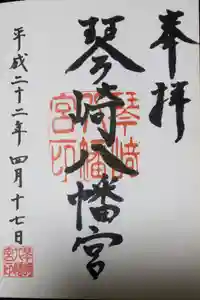 奉拝
琴崎八幡宮
琴崎
八幡
宮印
平成二十二年 四月十七日
琴崎
八幡
宮印